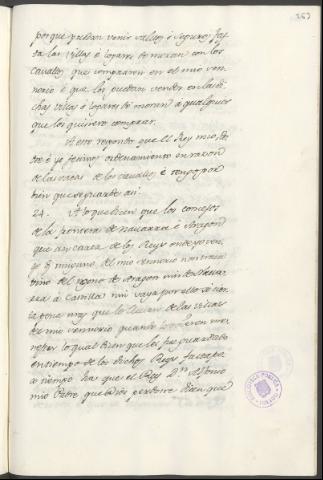 263
porque puedan venir salvos é seguros fas-
ta las villas é logares do moran con los
cavallos, que compraren en el mio sen-
norio é que los puedan vender en las di-
chas villas é logares do moren á qualesquier
que los quisiere comprar.
A esto respondo que el Rey mio
é yo fecimos ordenamiento en razon
de las sacas de los cavallos, é tengo por
bien que se guarde asi.
24. A lo que dicen que los concejos
de la frontera de Navarra é Aragon
que an cartas de los Reys onde yo ven-
go que ninguno del mio sennorio non traia
vino del regno de Aragon nin de Nava-
rra a Castilla nin vaya por ello
pena muy que lo lleven de las villas
de mio sennorio quando lo ovieren me-
nester lo qual dicen que les fue guardado
en tiempo de los dichos Reys fasta po-
co tiempo ha que el Rey D.n Alfonso
mio Padre que Dios perdone dicen que